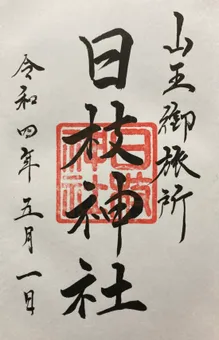 山王御旅所
日枝神社
令和四年五月一日
日枝神社